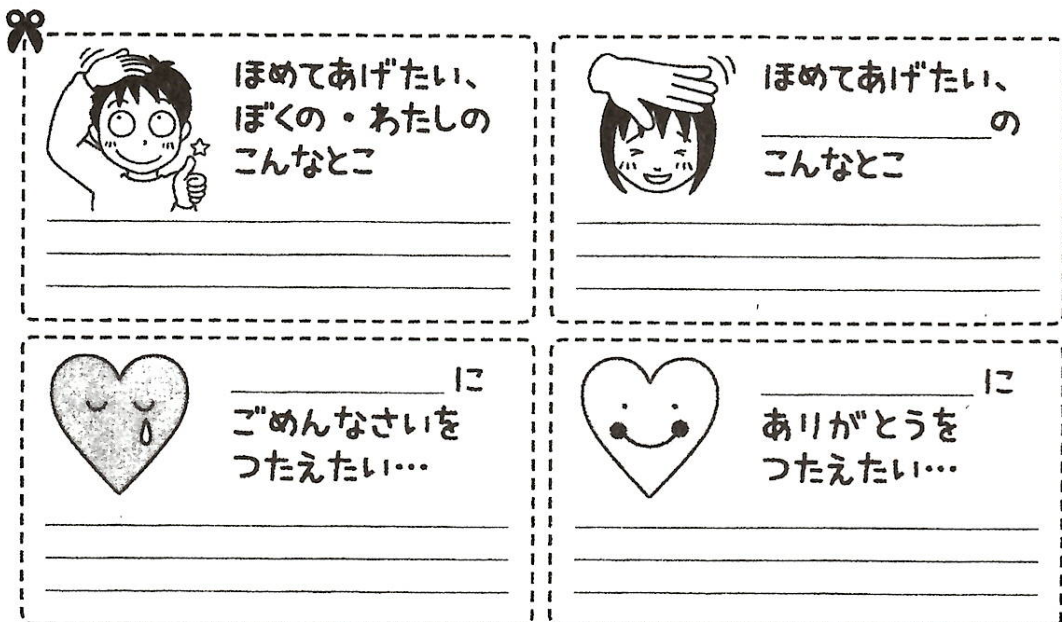 ほめてあげたい、
ぼくの・わたしの
こんなとこ
ほめてあげたい、
の
こんなとこ
に
ごめんなさいを
つたえたい…
に
ありがとうを
つたえたい…